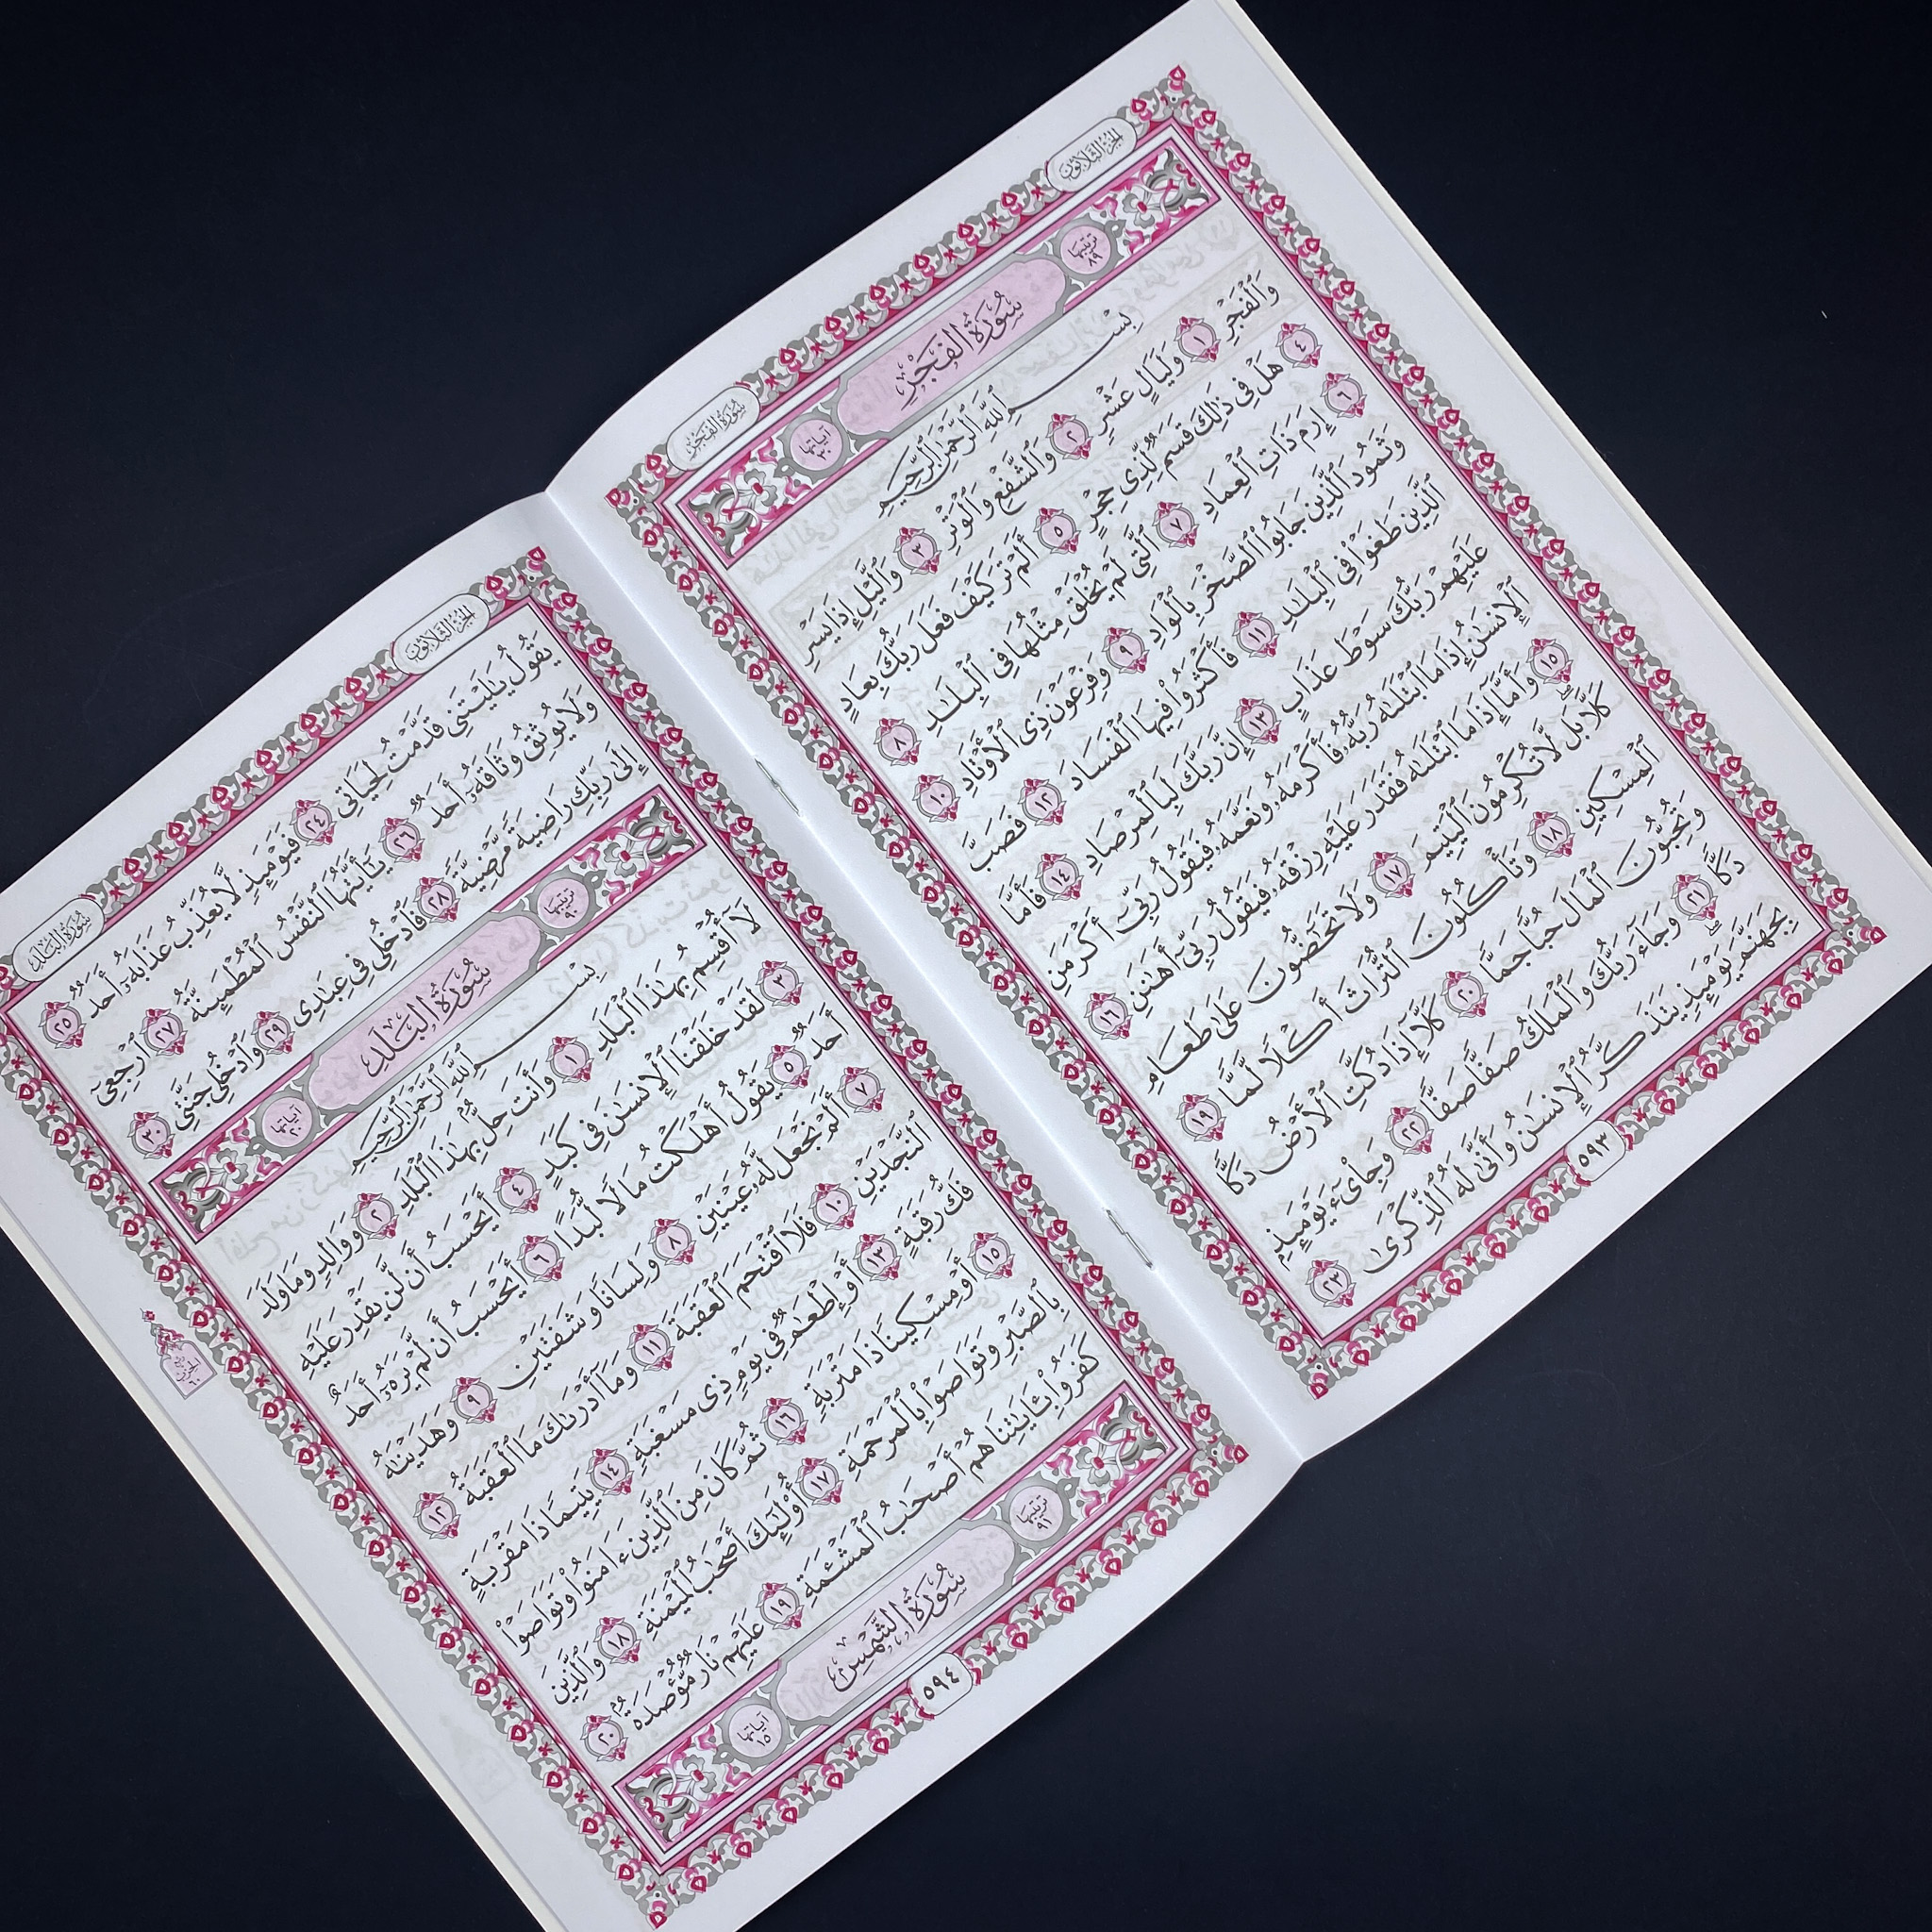 الجزء الثلاثون
سورة الفجر
ترتيبها ٨٩
سُورَةُ الفَجْرِ
آياتها ٣٠
بِسْمِ ٱللَّهِ ٱلرَّحْمَٰنِ ٱلرَّحِيمِ
وَٱلْفَجْرِ ١ وَلَيَالٍ عَشْرٍ ٢ وَٱلشَّفْعِ وَٱلْوَتْرِ ٣ وَٱلَّيْلِ إِذَا يَسْرِ
٤ هَلْ فِى ذَٰلِكَ قَسَمٌ لِّذِى حِجْرٍ ٥ أَلَمْ تَرَ كَيْفَ فَعَلَ رَبُّكَ بِعَادٍ
٦ إِرَمَ ذَاتِ ٱلْعِمَادِ ٧ ٱلَّتِى لَمْ يُخْلَقْ مِثْلُهَا فِى ٱلْبِلَٰدِ ٨
وَثَمُودَ ٱلَّذِينَ جَابُوا۟ ٱلصَّخْرَ بِٱلْوَادِ ٩ وَفِرْعَوْنَ ذِى ٱلْأَوْتَادِ ١٠
ٱلَّذِينَ طَغَوْا۟ فِى ٱلْبِلَٰدِ ١١ فَأَكْثَرُوا۟ فِيهَا ٱلْفَسَادَ ١٢ فَصَبَّ
عَلَيْهِمْ رَبُّكَ سَوْطَ عَذَابٍ ١٣ إِنَّ رَبَّكَ لَبِٱلْمِرْصَادِ ١٤ فَأَمَّا
ٱلْإِنسَٰنُ إِذَا مَا ٱبْتَلَىٰهُ رَبُّهُۥ فَأَكْرَمَهُۥ وَنَعَّمَهُۥ فَيَقُولُ رَبِّىٓ أَكْرَمَنِ
١٥ وَأَمَّآ إِذَا مَا ٱبْتَلَىٰهُ فَقَدَرَ عَلَيْهِ رِزْقَهُۥ فَيَقُولُ رَبِّىٓ أَهَٰنَنِ ١٦
كَلَّا ۖ بَل لَّا تُكْرِمُونَ ٱلْيَتِيمَ ١٧ وَلَا تَحَٰٓضُّونَ عَلَىٰ طَعَامِ
ٱلْمِسْكِينِ ١٨ وَتَأْكُلُونَ ٱلتُّرَاثَ أَكْلًا لَّمًّا ١٩
وَتُحِبُّونَ ٱلْمَالَ حُبًّا جَمًّا ٢٠ كَلَّآ إِذَا دُكَّتِ ٱلْأَرْضُ دَكًّا
دَكًّا ٢١ وَجَآءَ رَبُّكَ وَٱلْمَلَكُ صَفًّا صَفًّا ٢٢ وَجِا۟ىٓءَ يَوْمَئِذٍۭ
بِجَهَنَّمَ ۚ يَوْمَئِذٍ يَتَذَكَّرُ ٱلْإِنسَٰنُ وَأَنَّىٰ لَهُ ٱلذِّكْرَىٰ ٢٣
٥٩٣
الجزء الثلاثون
سورة البلد
يَقُولُ يَٰلَيْتَنِى قَدَّمْتُ لِحَيَاتِى ٢٤ فَيَوْمَئِذٍ لَّا يُعَذِّبُ عَذَابَهُۥٓ أَحَدٌ ٢٥
وَلَا يُوثِقُ وَثَاقَهُۥٓ أَحَدٌ ٢٦ يَٰٓأَيَّتُهَا ٱلنَّفْسُ ٱلْمُطْمَئِنَّةُ ٢٧ ٱرْجِعِىٓ
إِلَىٰ رَبِّكِ رَاضِيَةً مَّرْضِيَّةً ٢٨ فَٱدْخُلِى فِى عِبَٰدِى ٢٩ وَٱدْخُلِى جَنَّتِى ٣٠
ترتيبها ٩٠
سُورَةُ البَلَدِ
آياتها ٢٠
بِسْمِ ٱللَّهِ ٱلرَّحْمَٰنِ ٱلرَّحِيمِ
لَآ أُقْسِمُ بِهَٰذَا ٱلْبَلَدِ ١ وَأَنتَ حِلٌّۢ بِهَٰذَا ٱلْبَلَدِ ٢ وَوَالِدٍ وَمَا وَلَدَ
٣ لَقَدْ خَلَقْنَا ٱلْإِنسَٰنَ فِى كَبَدٍ ٤ أَيَحْسَبُ أَن لَّن يَقْدِرَ عَلَيْهِ
أَحَدٌ ٥ يَقُولُ أَهْلَكْتُ مَالًا لُّبَدًا ٦ أَيَحْسَبُ أَن لَّمْ يَرَهُۥٓ أَحَدٌ
٧ أَلَمْ نَجْعَل لَّهُۥ عَيْنَيْنِ ٨ وَلِسَانًا وَشَفَتَيْنِ ٩ وَهَدَيْنَٰهُ
ٱلنَّجْدَيْنِ ١٠ فَلَا ٱقْتَحَمَ ٱلْعَقَبَةَ ١١ وَمَآ أَدْرَىٰكَ مَا ٱلْعَقَبَةُ ١٢
فَكُّ رَقَبَةٍ ١٣ أَوْ إِطْعَٰمٌ فِى يَوْمٍ ذِى مَسْغَبَةٍ ١٤ يَتِيمًا ذَا مَقْرَبَةٍ
١٥ أَوْ مِسْكِينًا ذَا مَتْرَبَةٍ ١٦ ثُمَّ كَانَ مِنَ ٱلَّذِينَ ءَامَنُوا۟ وَتَوَاصَوْا۟
بِٱلصَّبْرِ وَتَوَاصَوْا۟ بِٱلْمَرْحَمَةِ ١٧ أُو۟لَٰٓئِكَ أَصْحَٰبُ ٱلْمَيْمَنَةِ ١٨ وَٱلَّذِينَ
كَفَرُوا۟ بِـَٔايَٰتِنَا هُمْ أَصْحَٰبُ ٱلْمَشْـَٔمَةِ ١٩ عَلَيْهِمْ نَارٌ مُّؤْصَدَةٌۢ ٢٠
ترتيبها ٩١
سُورَةُ الشَّمْسِ
آياتها ١٥
٥٩٤
الحزب ٦٠